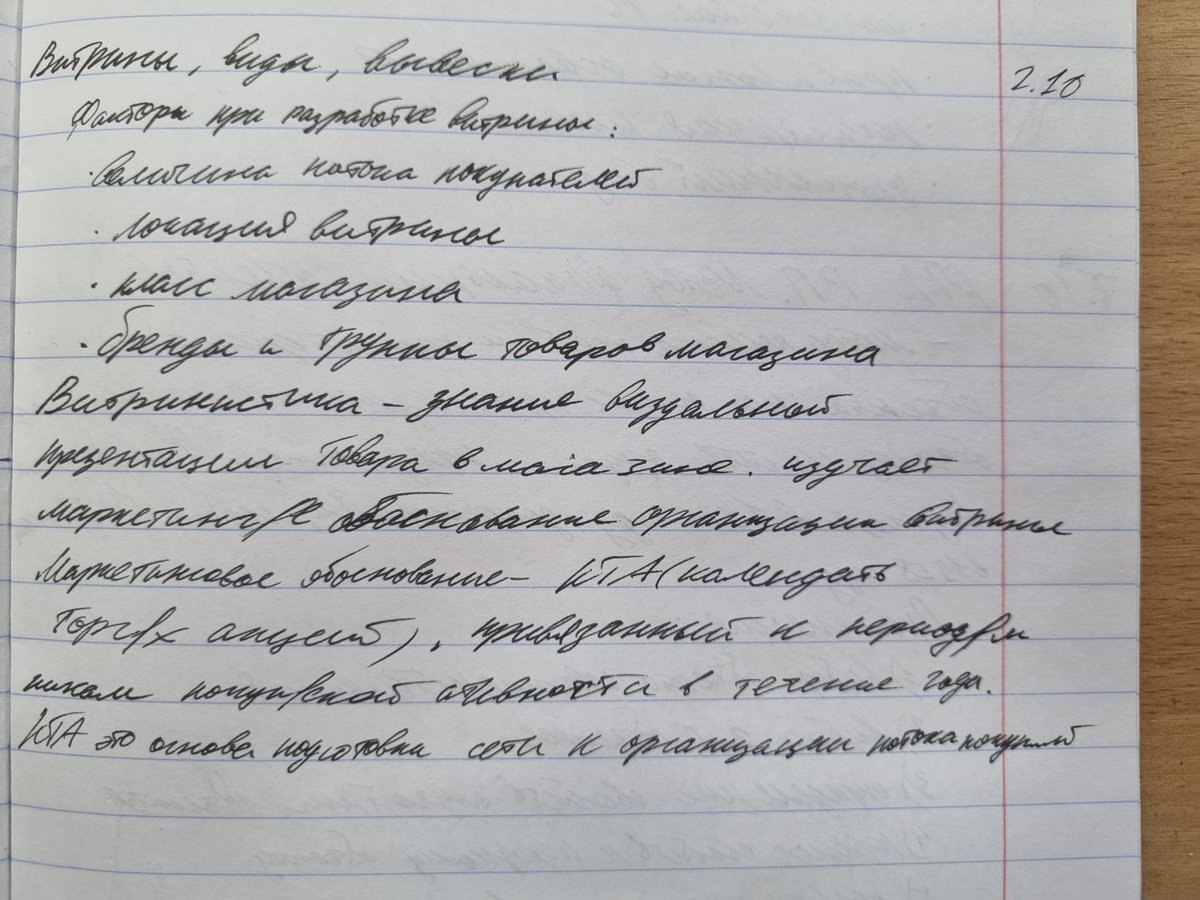 Витрины, виды, вывески
2.10
Факторы при разработке витрины:
· величина потока покупателей
· локация витрины
· класс магазина
· бренды и группы товаров магазина
Витринистика – знание визуальной
презентации товара в магазине. изучает
маркетинг/е обоснование организации витрины
Маркетинговое обоснование – КТА (календать
торг/х акций), привязанный к период/м
пикам покуп/ской ативности в течение года.
КТА это основа подготовки сети к организации потока покуп-лей